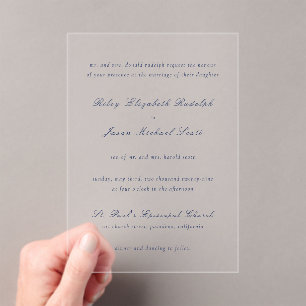 mr. and mrs. donald rudolph request the honour
of your presence at the marriage of their daughter
Riley Elizabeth Rudolph
to
Jason Michael Scott
son of mr. and mrs. harold scott
sunday, may third, two thousand twenty-nine
at four o'clock in the afternoon
St. Paul's Episcopal Church
church street, california
dinner and dancing to follow